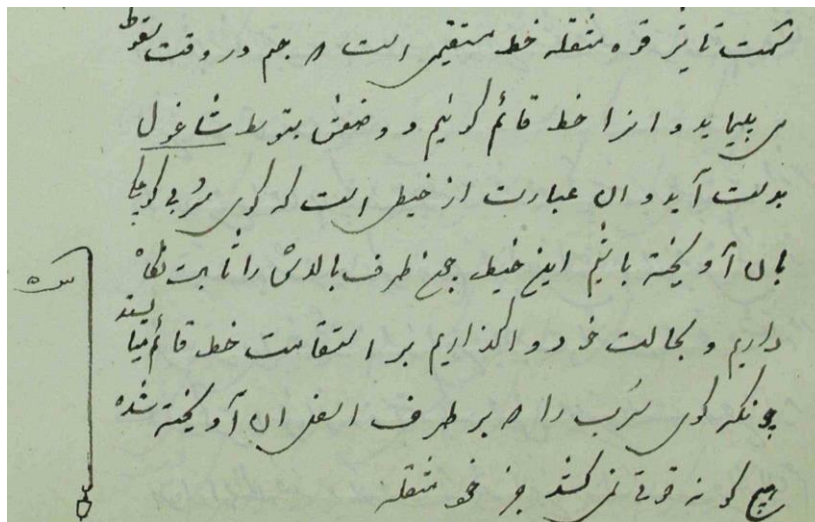 سمت تاثیر قوه مثقله خط مستقیمی است که جسم در وقت سقوط
می پیماید و انرا خط قائم گوئیم و وضعش بتوسط شاغول
بدست آید و ان عبارت از خیطی است که گوی سربی کوچکی
بان آویخته باشیم این خیط چون طرف بالایش را ثابت نگاه
داریم و بحالت خود واگذاریم بر استقامت خط قائم میایستد
چونکه گوی سرب را که بر طرف اسفل ان آویخته شده
هیچ گونه قوتی نمی کشد جز مثقله